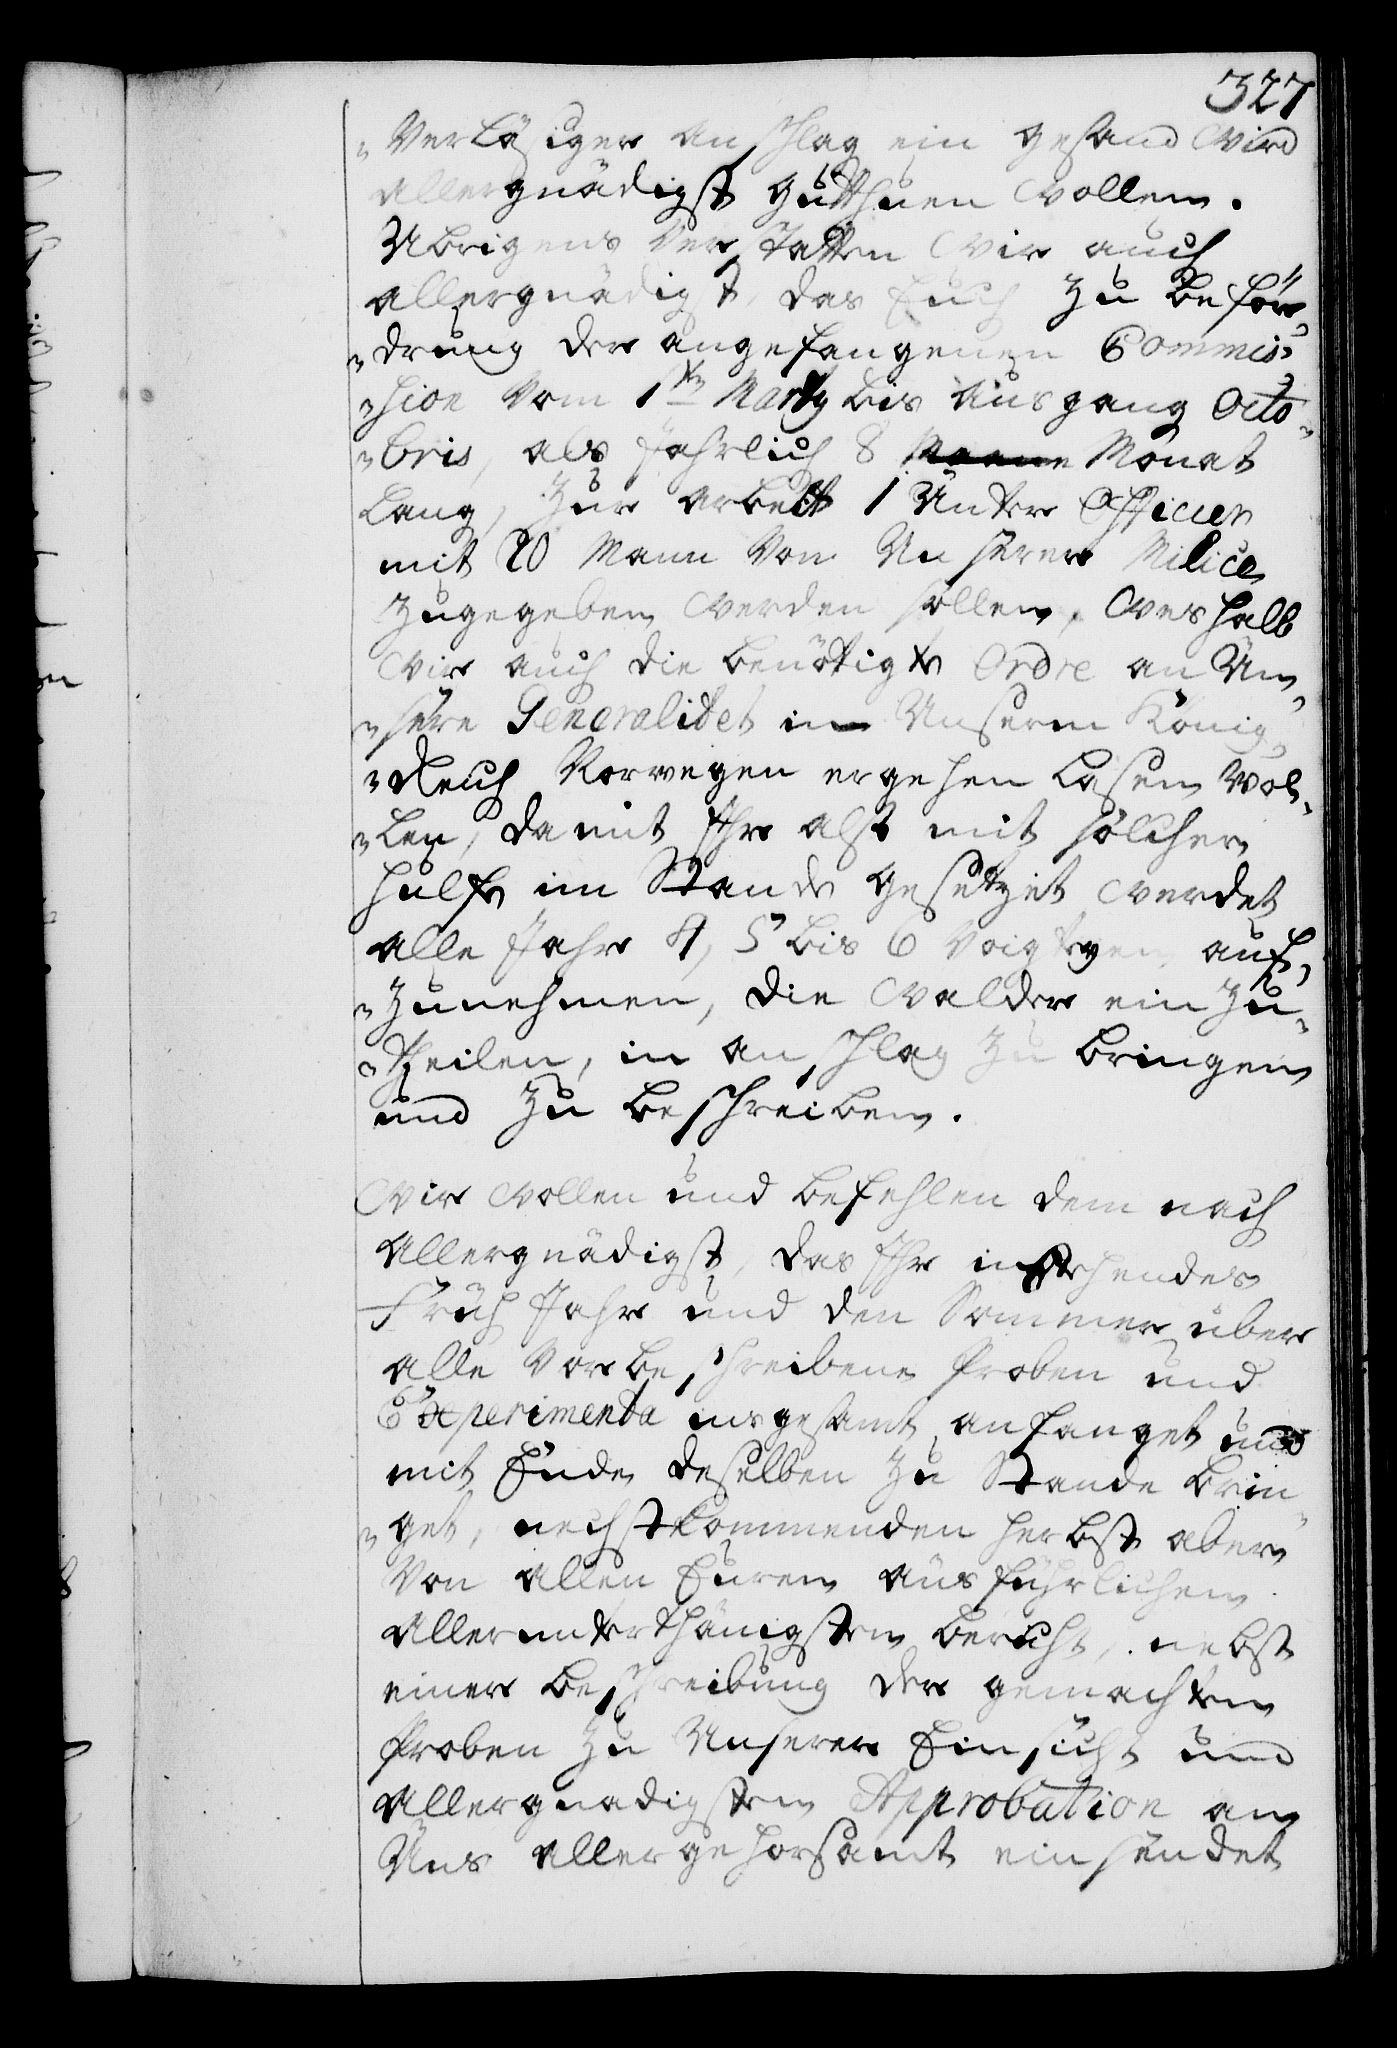 327
"Verläsiger anschlag ein gesand wird
allergnädigst gutthuen wollen.
Ubrigens Verstatten wir auch
allergnädigst, das Euch zu beför„
"drung der angefangenen Commis„
"sion vom 1ten Marty bis ausgang Octo„
"bris, als Jahrlich 8 Monat
lang, zur arbeit 1 Unter Officier
mit 20 Mann von Unserer Milice
zugegeben werden sollen, weshalb
wir auch die benötigte Ordre an Un„
"sere Generalitet in Unserm König„
"Reich Norwegen ergehen lasen wol„
"len, damit Ihr alst mit solcher
hulfe im Stande gesetzet werdet
alle Jahr 4, 5 bis 6 Voigteyen auf„
"zunehmen, die Walder ein zu„
"theilen, in anschlag zu bringen
und zu beschreiben.
Wir wollen und befehlen dem nach
Allergnädigst, das Ihr instehendes
Früh Jahr und den Sommer über
alle Vorbeschreibene Proben und
Experimenta insgesamt anfanget und
mit Ende deselben zu Stande brin„
"get, nechstkommenden herbst aber
Von allen Euren ausführlichen
Allerunterthänigsten bericht, nebst
einer beschreibung der gemachten
Proben zu Unserer Einsicht und
Allergnadigsten Approbation an
Uns allergehorsamt einsendet